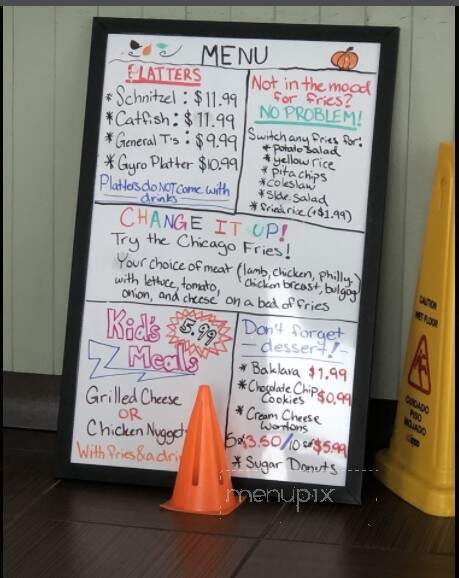 MENU
PLATTERS
* Schnitzel : $11.99
* Catfish : $11.99
* General T's : $9.99
* Gyro Platter $10.99
Platters do NOT come with
drinks
Not in the mood
for fries?
NO PROBLEM!
Switch any fries for:
* potato salad
* yellow rice
* pita chips
* coleslaw
* side salad
* fried rice (+$1.99)
CHANGE IT UP!
Try the Chicago Fries!
Your choice of meat (lamb, chicken, philly,
chicken breast, bulgogi)
with lettuce, tomato,
onion, and cheese on a bed of fries
Kid's
5.99
Meals
Grilled Cheese
OR
Chicken Nugget
With fries & a drin
Don't forget
- dessert! -
* Baklava $1.99
* Chocolate Chip
Cookies $0.99
* Cream Cheese
Wontons
3.50/10 $5.99
* Sugar Donuts
CAUTION
WET FLOOR
CUIDADO
PISO
MOJADO
menupix